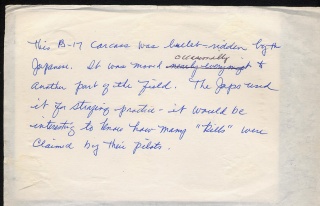 This B-17 carcass was bullet-ridden by the
Japanese. It was moved occasionally to
another part of the field. The Japs used
it for strafing-practice - it would be
interesting to know how many "kills" were
claimed by their pilots.